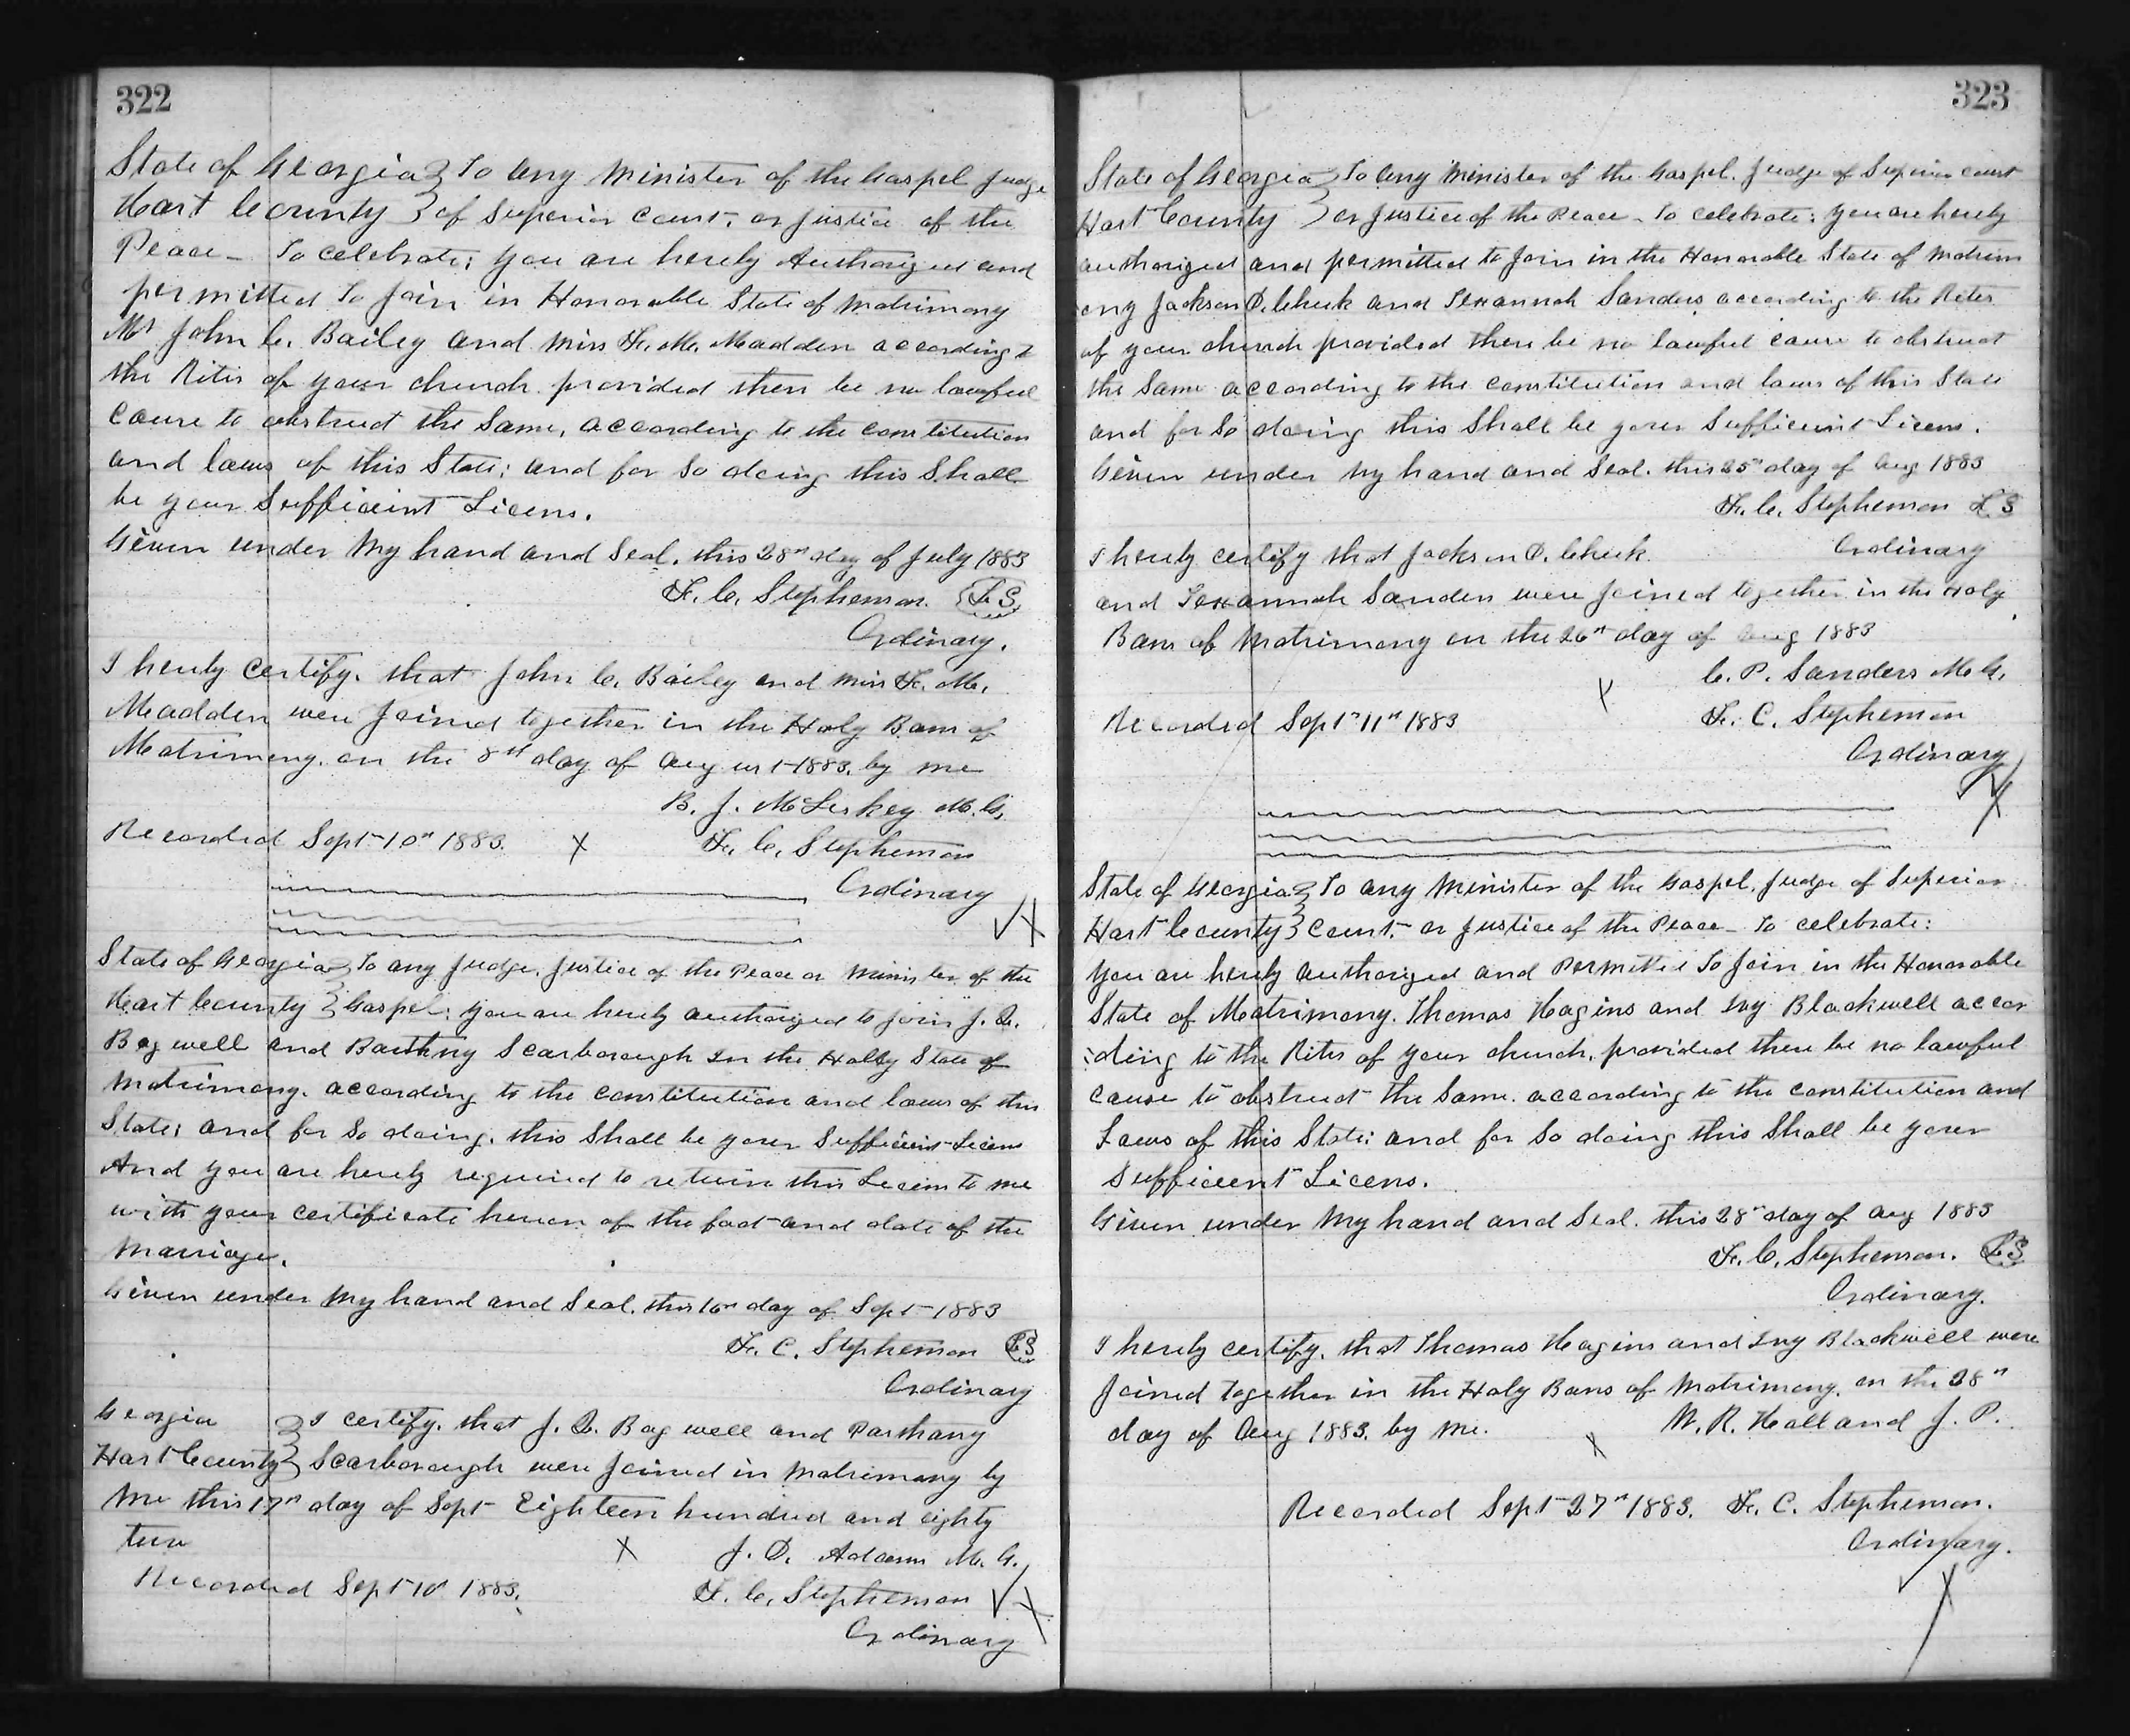 322
State of Georgia } To any Minister of the Gospel Judge
Hart County } of Superior Court, or Justice of the
Peace - To celebrate; you are hereby Authorized and
permitted To Join in Honorable State of Matrimony
Mr John C. Bailey and Miss F. M. Madden according to
the Rites of your church provided there be no lawful
Cause to obstruct the Same, according to the constitution
and laws of this State; and for So doing this Shall
be your Sufficient Licens.
Given under My hand and Seal. this 28th day of July 1883
F. C. Stephenson. {LS}
Ordinary.
I hereby certify. that John C. Bailey and Miss F. M.
Madden were Joined together in the Holy Bans of
Matrimony. on the 8th day of August 1883. by me
B. J. McLeskey M. G.
Recorded Sept 10th 1883. X F. C. Stephenson
Ordinary
State of Georgia } To any Judge, Justice of the Peace or Minister of the
Hart County } Gospel: you are hereby authorized to join J. Q.
Bagwell and Scarborough In the Holly State of
Matrimony. according to the constitution and laws of this
State; and for So doing. this Shall be your Sufficient Licens
And you are hereby required to return this Licens to me
with your certificate hereon of the fact and date of the
Marriage.
Given under My hand and Seal. this 16th day of Sept 1883
F. C. Stephenson LS
Ordinary
Georgia } I certify. that J. Q. Bagwell and Parthany
Hart County } Scarborough were Joined in Matrimony by
Me this 17th day of Sept Eighteen hundred and eighty
X J. D. Adams M. G.
Recorded Sept 10 1883. F. C. Stephenson
Ordinary
323
State of Georgia } To any Minister of the Gospel. Judge of Superior court
Hart County } or Justice of the Peace - To celebrate: you are hereby
authorized and permitted to Join in the Honorable State of Matrim
ony Jackson D. Cheek and Texannah Sanders according to the Rites
of your church provided there be no lawful cause to obstruct
the Same according to the constitution and laws of this State
and for So doing this Shall be your Sufficient Licens.
Given under My hand and Seal. this 25th day of Aug 1883
F. C. Stephenson LS
Ordinary
I hereby certify that Jackson D. Cheek
and Texannah Sanders were Joined together in the Holy
Bans of Matrimony on the 26th day of Aug 1883
C. P. Sanders M. G.
Recorded Sept 11th 1883 X F. C. Stephenson
Ordinary
State of Georgia } To any Minister of the Gospel. Judge of Superior
Hart County } Court, or Justice of the Peace - To celebrate:
You are hereby authorized and Permitted To Join in the Honorable
State of Matrimony. Thomas Hagins and Ivy Blackwell accor
:ding to the Rites of your church, provided there be no lawful
cause to obstruct the Same. according to the constitution and
Laws of this State: and for So doing this Shall be your
Sufficient Licens.
Given under My hand and Seal. this 28th day of Aug 1883
F. C. Stephenson. LS
Ordinary.
I hereby certify. that Thomas Hagins and Ivy Blackwell were
Joined together in the Holy Bans of Matrimony. on the 28th
day of Aug 1883. by Me. X W. R. Holland J. P.
Recorded Sept 27th 1883. F. C. Stephenson.
Ordinary.